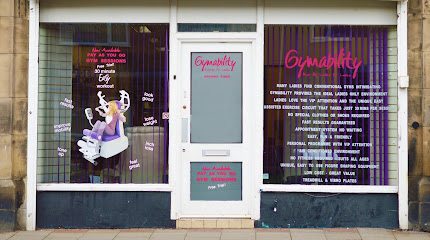 Now Available
PAY AS YOU GO
GYM SESSIONS
From £4!
30 minute
Easy
workout
feel
look
good!
lose
weight
improve
mobility
tone up
inch
loss
feel
great!
Gymability
Now Available
PAY AS YOU GO
GYM SESSIONS
Gymability
MANY LADIES FIND CONVENTIONAL GYMS INTIMIDATING
GYMABILITY PROVIDES THE IDEAL LADIES ONLY ENVIRONMENT
LADIES LOVE THE VIP ATTENTION AND THE UNIQUE EASY
ASSISTED EXERCISE CIRCUIT THAT TAKES JUST 30 MINS PER SESS
NO SPECIAL CLOTHES OR SHOES REQUIRED
FAST RESULTS GUARANTEED
APPOINTMENT SYSTEM NO WAITING
EASY, FUN & FRIENDLY
PERSONAL PROGRAMME WITH VIP ATTENTION
ENVIRONMENT
NO FITNESS SUITS ALL AGES
UNIQUE, EASY TO USE FIGURE SHAPING EQUIPMENT
LOW COST - GREAT VALUE
TREADMILL & VIBRO PLATES